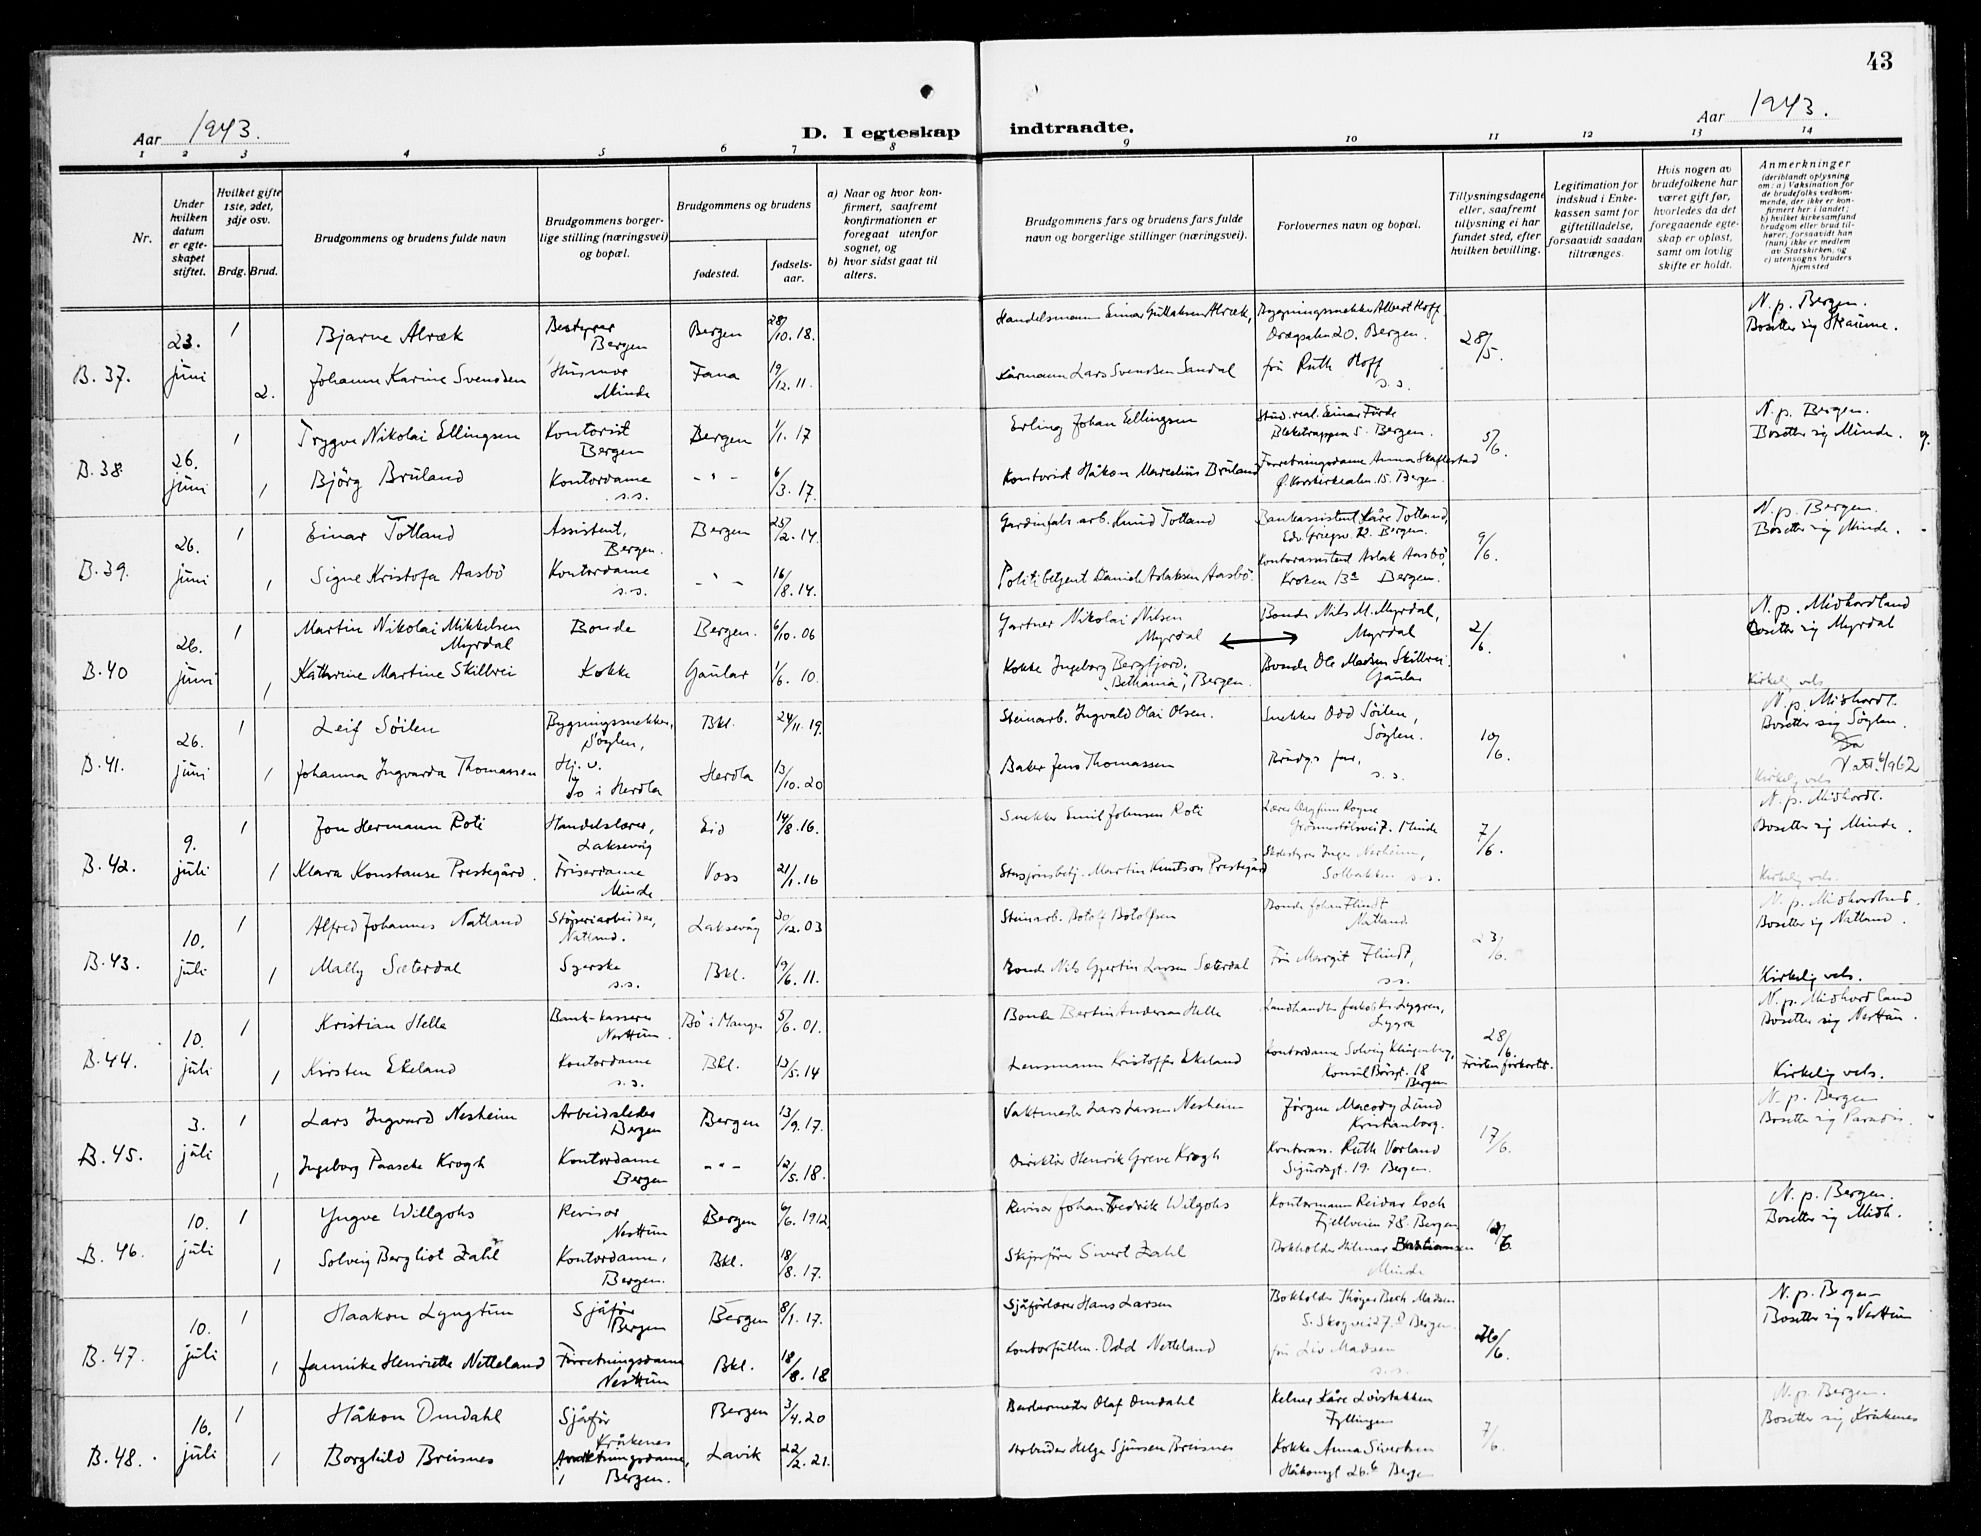 43
Aar 1943.
D. I egteskap indtraadte.
Aar 1943.
1 2 3 4 5 6 7 8 9 10 11 12 13 14
Nr.
Under hvilken datum er egteskapet stiftet.
Hvilket gifte 1ste, 2det, 3dje osv.
Brdg. Brud.
Brudgommens og brudens fulde navn
Brudgommens borgerlige stilling (næringsvei) og bopæl.
Brudgommens og brudens
fødested.
fødselsaar.
a) Naar og hvor konfirmert, saafremt konfirmationen er foregaat utenfor sognet, og
b) hvor sidst gaat til alters.
Brudgommens fars og brudens fars fulde navn og borgerlige stillinger (næringsvei).
Forlovernes navn og bopæl.
Tillysningsdagene eller, saafremt tillysning ei har fundet sted, efter hvilken bevilling.
Legitimation for indskud i Enkekassen samt for giftetilladelse, forsaavidt saadan tiltrænges.
Hvis nogen av brudefolkene har været gift før, hvorledes da det foregaaende egteskap er opløst, samt om lovlig skifte er holdt.
Anmerkninger
(deriblandt oplysning om: a) Vaksination for de brudefolks vedkommende, der ikke er konfirmert her i landet;
b) hvilket kirkesamfund brudgom eller brud tilhører, forsaavidt han (hun) ikke er medlem av Statskirken, og
c) utensogns bruders hjemsted
B. 37. 23. juni
1 Bjarne Alræk Bestyrer Bergen Bergen 28/10. 18. Handelsmann Einar Gullaksen Alræk, Bygningssnekker Albert Hoff Dregsalm 20. Bergen. 28/5. N. p. Bergen. Bosetter sig Skaune.
2. Johanne Karine Svendsen Husmor Minde Fana 19/12. 11. Kårmann Lars Svendsen Sandal fru Ruth Hoff s.s.
B. 38 26. juni
1 Trygve Nikolai Ellingsen Kontorist Bergen Bergen 1/1. 17 Erling Johan Ellingsen Stud. real. Einar Förde Bleketrappen 5. Bergen. 5/6. N. p. Bergen. Bosetter sig Minde.
1 Björg Bruland Kontordame s.s. - " - 6/3. 17. Kontorist Håkon Marcelius Bruland Forretningsdame Anna Skaftestad Ö. Korskirkealm. 15. Bergen.
B. 39. 26. juni
1 Einar Totland Assistent, Bergen. Bergen 25/2. 14. Gardinfabr. arb. Knud Totland Bankassistent Kåre Totland, Edv. Griegsv. 12. Bergen. 9/6. N. p. Bergen. Bosetter sig Minde.
1 Signe Kristofa Aasbö Kontordame s.s. - " - 16/8. 14. Politibetjent Daniel Aslaksen Aasbö. Kontorassistent Aslak Aasbö, Kroken 13a Bergen.
B. 40 26. juni
1 Martin Nikolai Mikkelsen Myrdal Bonde Bergen. 6/10. 06 Gartner Nikolai Nilsen Myrdal Bonde Nils M. Myrdal, Myrdal 2/6. N. p. Midhordland Bosetter sig Myrdal
1 Kathrine Martine Skilbrei Kokke Gaular 1/6. 10. Kokke Ingeborg Bergfjord. "Bethania", Bergen. Bonde Ole Madsen Skilbrei. Gaular Kirkelig vels.
B. 41. 26. juni
1 Leif Söilen Bygningssnekker, Söylen, Bkl. 24/11. 19. Steinarb. Ingvald Olai Olsen. Snekker Odd Söilen, Söylen. 10/6. N. p. Midhordl. Bosetter sig Söylen.
1 Johanna Ingvarda Thomassen Hj. v. i Herdla Herdla 13/10. 20 Baker Jens Thomassen Brudgs far, s.s. V att. 6/962 Kirkelig vels
B. 42. 9. juli
1 Jon Hermann Roti Handelslærer, Laksevåg Eid 14/8. 16. Snekker Emil Johnsen Roti Lærer Dagfinn Rogne Grönnestölsvei 7. Minde 7/6. N. p. Midhordl. Bosetter sig Minde.
1 Klara Konstanse Prestegård. Friserdame Minde Voss 21/1. 16 Stasjonsbetj. Martin Knutson Prestegård Inger Nesheim, Solbakken s.s. Kirkelig vels.
B. 43. 10. juli
1 Alfred Johannes Natland Støperiarbeider, Natland. Laksevåg 30/12. 03 Steinarb. Botolf Botolfsen Bonde Johan Flindt Natland. 23/6. N. p. Midhordland. Bosetter sig Natland.
1 Mally Sæterdal Syerske s.s. Bkl. 19/6. 11. Bonde Nils Gjertin Larsen Sæterdal Fru Margit Flindt, s.s. Kirkelig vels.
B. 44. 10. juli
1 Kristian Helle Bank-kasserer Nesttun. Bö i Manger 5/6. 01. Bonde Bertin Andersen Helle Landhandler Lygren, Lygra 28/6. Fristen forkortet. N. p. Midhordland Bosetter sig Nesttun.
1 Kirsten Ekeland Kontordame s.s. Bkl. 13/5. 14 Lensmann Kristoffer Ekeland Kontordame Solveig Klingenberg, Konsul Börsgt. 18 Bergen Kirkelig vels.
B. 45. 3. juli
1 Lars Ingvard Nesheim Arbeidsleder Bergen Bergen 13/9. 17. Vaktmester Lars Larsen Nesheim Jörgen Macody Lund Kristianborg. 17/6. N. p. Bergen Bosetter sig Paradis.
1 Ingeborg Paasche Krogh Kontordame Bergen - " - 12/5. 18. Direktör Henrik Greve Krogh Kontorass. Ruth Vorland Sigurdsgt. 19. Bergen.
B. 46. 10. juli
1 Yngve Willgohs Revisor Nesttun Bergen 6/6. 1912. Revisor Johan Fredrik Wilgohs Kontormann Reidar Koch Fjellveien 78. Bergen N. p. Bergen. Bosetter sig Midh.
1 Solveig Bergliot Zahl Kontordame, Bergen. Bkl. 18/8. 17. Skipsfører Sivert Zahl Bokholder Hilmar Bastiansen Minde
B. 47. 10. juli
1 Haakon Lyngtun Sjåför Bergen Bergen 8/1. 17. Sjåförlærer Hans Larsen Bokholder Thöger Bech Madsen S. Skogvei 27. Bergen. 26/6. N. p. Bergen Bosetter sig Nesttun
1 Jannike Henriette Netteland Forretningsdame Nesttun Bkl. 18/8. 18 Kontorfullm. Odd Netteland fru Liv Madsen s.s.
B. 48. 16. juli
1 Håkon Omdahl Sjåför Kråkenes Bergen 3/4. 20 Bademester Olaf Omdahl Kelner Kåre Lövstakken Fyllingen 7/6. N. p. Bergen. Bosetter sig Kråkenes
1 Borghild Breisnes Bergen. Lavik 22/2. 21. Arbeider Helge Sjursen Breisnes Kokke Anna Sivertsen Håkonsgt 26.b Bergen